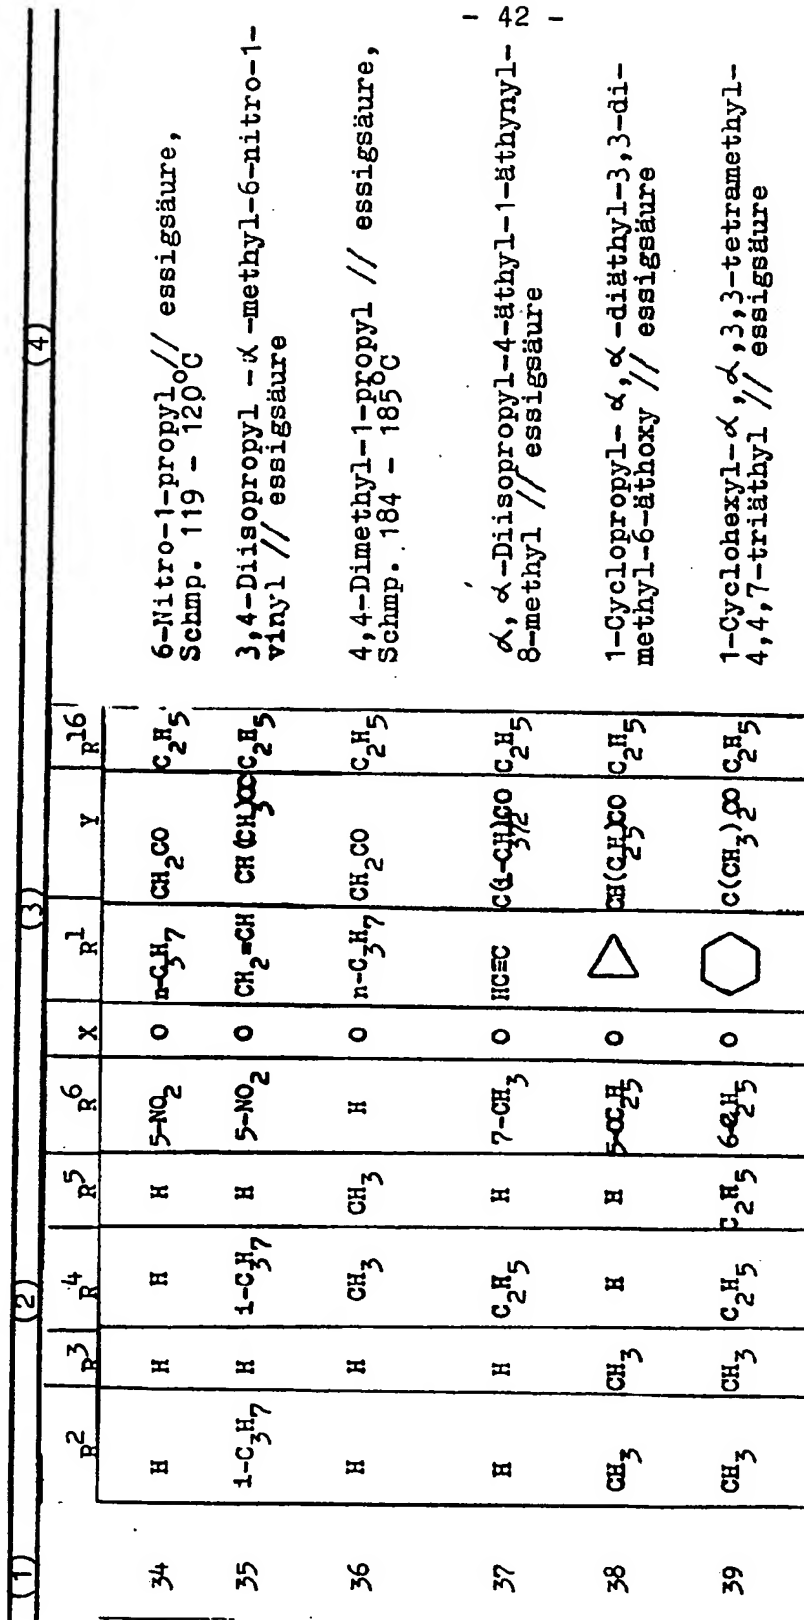 - 42 -
(1) (2) (3) (4)
R2 R3 R4 R5 R6 X R1 Y R16
34 H H H H 5-NO2 O n-C3H7 CH2CO C2H5 6-Nitro-1-propyl // essigsäure,
Schmp. 119 - 120°C
35 i-C3H7 H i-C3H7 H 5-NO2 O CH2=CH CH(CH3)CO C2H5 3,4-Diisopropyl -α-methyl-6-nitro-1-
vinyl // essigsäure
36 H H CH3 CH3 H O n-C3H7 CH2CO C2H5 4,4-Dimethyl-1-propyl // essigsäure,
Schmp. 184 - 185°C
37 H H C2H5 H 7-CH3 O HC≡C C(i-CH3)2CO C2H5 α,α-Diisopropyl-4-äthyl-1-äthynyl-
8-methyl // essigsäure
38 CH3 CH3 H H 5-OC2H5 O CH(C2H5)CO C2H5 1-Cyclopropyl- α,α-diäthyl-3,3-di-
methyl-6-äthoxy // essigsäure
39 CH3 CH3 C2H5 C2H5 6-C2H5 O C(CH3)2CO C2H5 1-Cyclohexyl-α,α,3,3-tetramethyl-
4,4,7-triäthyl // essigsäure